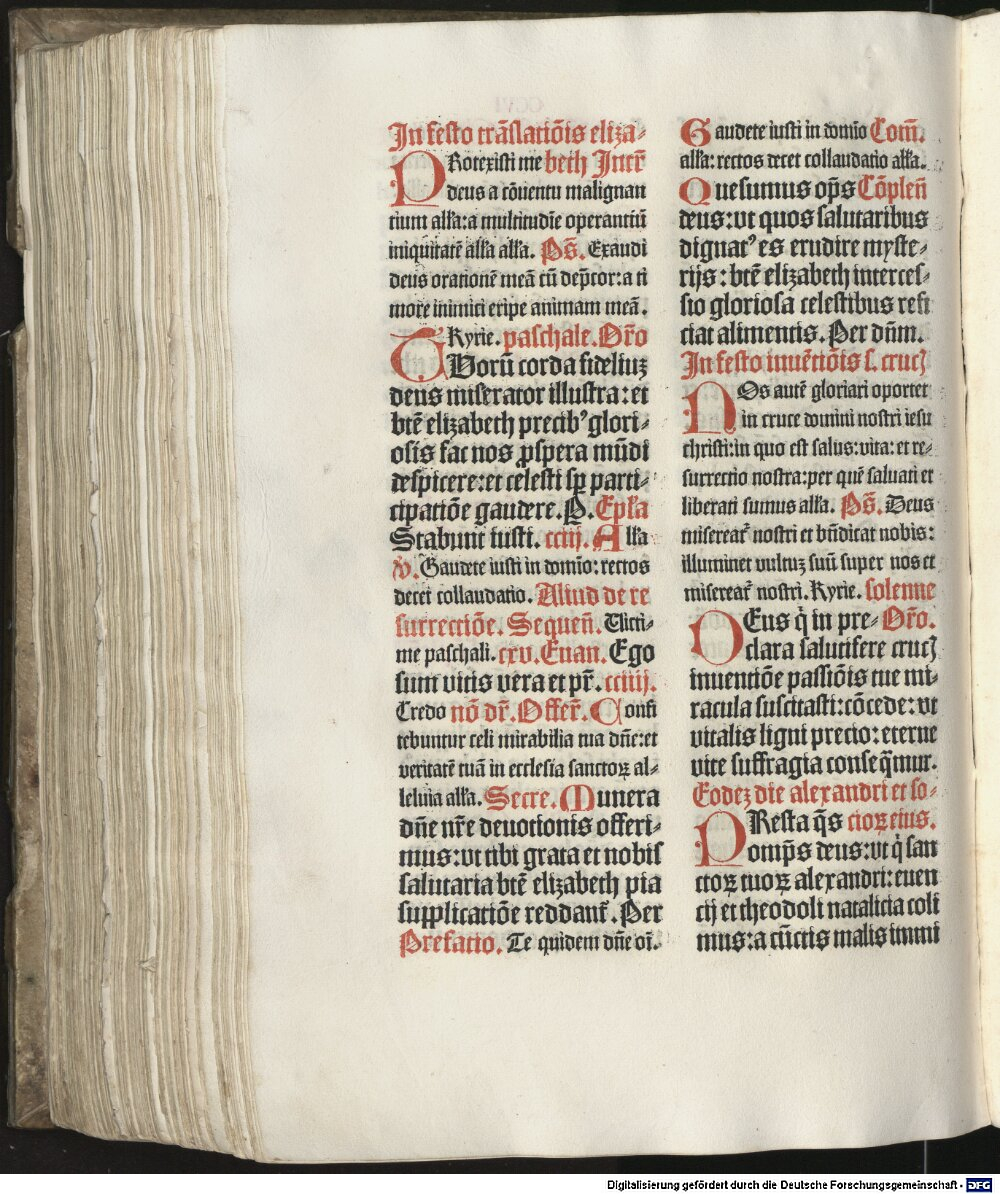 In festo trãslatiõis eliza⸗
PRotexisti me beth Intr̃
deus a cõuentu malignan
tium alľa: a multitudĩe operantiũ
iniquitatẽ alľa alľa. Ps̃. Exaudi
deus orationẽ meã cũ dep̃cor: a ti
more inimici eripe animam meã.
Kyrie. paschale. Or̃o
TUorũ corda fideliuȝ
deus miserator illustra: et
btẽ elizabeth precibꝰ glori⸗
osis fac nos ꝓspera mũdi
despicere: et celesti sp̃ parti⸗
cipatiõe gaudere. P. Epľa
Stabunt iusti. cciij. Alľa
v̾. Gaudete iusti in domĩo: rectos
decet collaudatio. Aliud de re
surrectiõe. Sequeñ. Uicti⸗
me paschali. cxv. Euan. Ego
sum vitis vera et pr̃. cciiij.
Credo nõ dr̃. Offer̃. Confi
tebuntur celi mirabilia tua dñe: et
veritatẽ tuã in ecclesia sanctoꝝ al⸗
leluia alľa. Secre. Munera
dñe nr̃e deuotionis offeri⸗
mus: vt tibi grata et nobis
salutaria btẽ elizabeth pia
supplicatiõe reddant̃. Per
Prefatio. Te quidem dñe oĩ.
Gaudete iusti in domĩo Com̃.
alľa: rectos decet collaudatio alľa.
Quesumus op̃s Cõpleñ
deus: vt quos salutaribus
dignatꝰ es erudire myste⸗
rijs: btẽ elizabeth interces⸗
sio gloriosa celestibus refi
ciat alimentis. Per dñm.
In festo inuẽtiõis s. crucꝭ
NOs autẽ gloriari oportet
in cruce domini nostri iesu
christi: in quo est salus: vita: et re⸗
surrectio nostra: per quẽ saluati et
liberati sumus alľa. Ps̃. Deus
misereat̃ nostri et bñdicat nobis:
illuminet vultuȝ suũ super nos et
misereat̃ nostri. Kyrie. solenne
DEus q̇ in pre⸗ Or̃o.
clara salutifere crucꝭ
inuentiõe passiõis tue mi⸗
racula suscitasti: cõcede: vt
vitalis ligni precio: eterne
vite suffragia conseq̃mur.
Eodeȝ die alexandri et so⸗
PResta q̃s cioꝝ eius.
omp̃s deus: vt q̇ san
ctoꝝ tuoꝝ alexandri: euen
cij et theodoli natalicia coli
mus: a cũctis malis immi
Digitalisierung gefördert durch die Deutsche Forschungsgemeinschaft - DFG